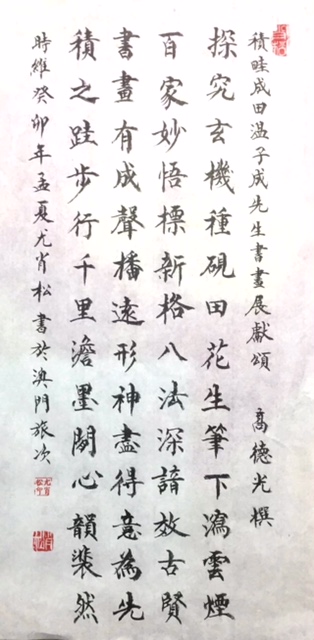 積畦成田温子成先生書畫展獻頌 高德光撰
探究玄機種硯田花生筆下瀉雲煙
百家妙悟標新格八法深諳效古賢
書畫有成聲播遠形神盡得意為先
積之跬步行千里澹墨關心韻裴然
時維癸卯年孟夏尤肖松書於澳門旅次